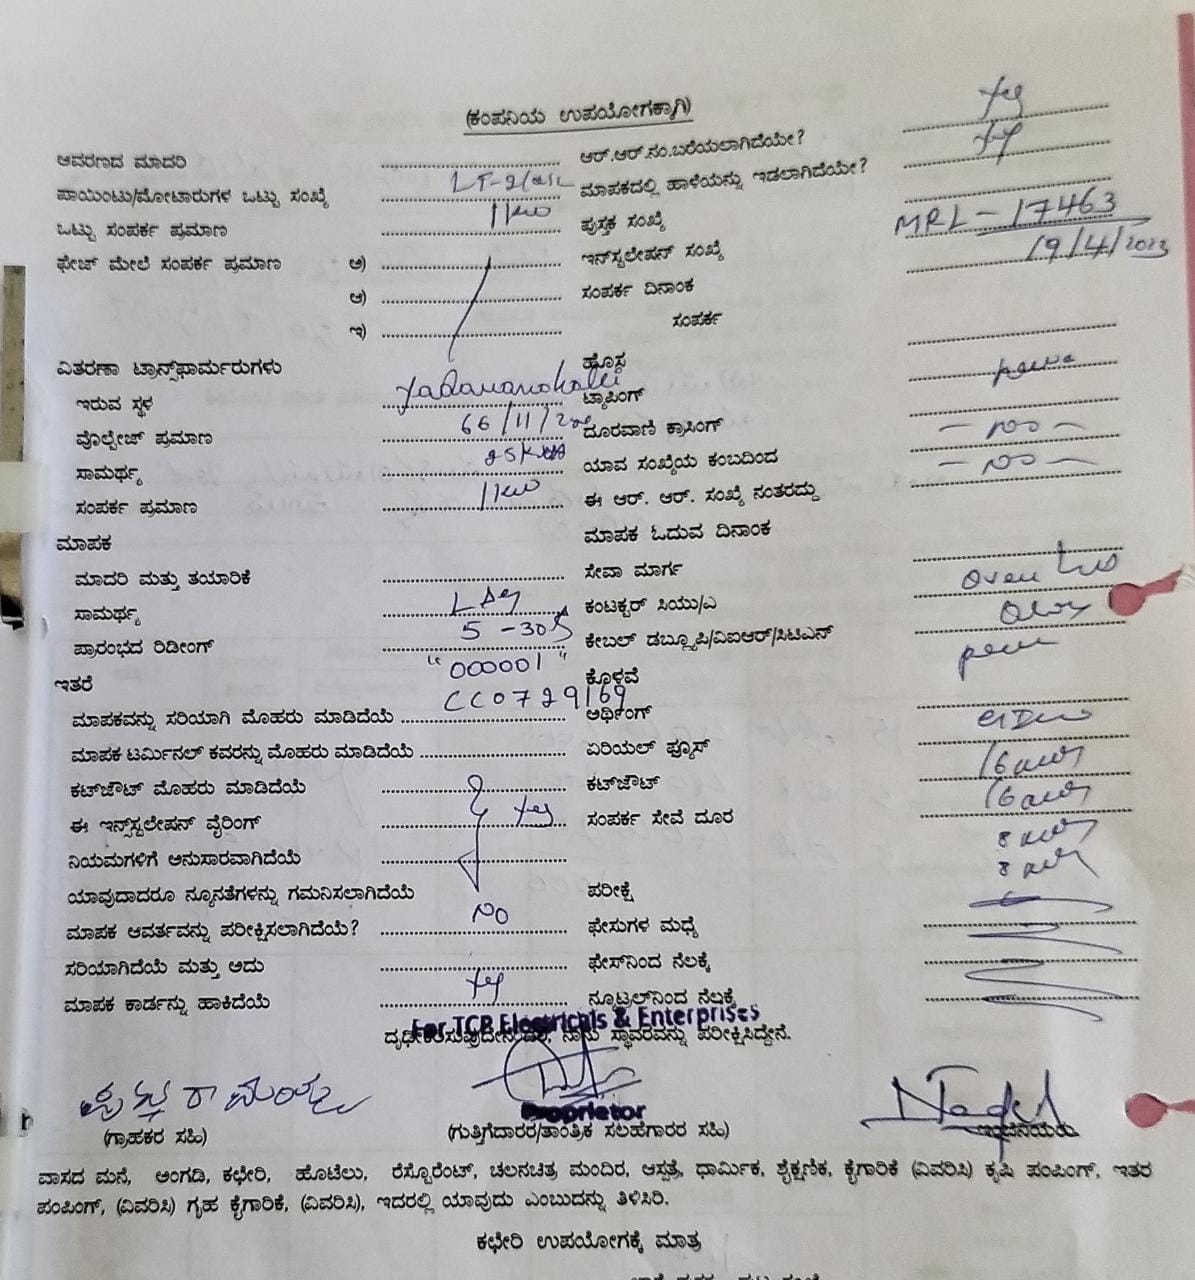 (ಕಂಪನಿಯ ಉಪಯೋಗಕ್ಕಾಗಿ)
ಆವರಣದ ಮಾದರಿ ಆರ್.ಆರ್.ನಂ.ಬರೆಯಲಾಗಿದೆಯೇ? Yes
ಪಾಯಿಂಟು/ಮೋಟಾರುಗಳ ಒಟ್ಟು ಸಂಖ್ಯೆ ಮಾಪಕದಲ್ಲಿ ಹಾಳೆಯನ್ನು ಇಡಲಾಗಿದೆಯೇ? Yes
ಒಟ್ಟು ಸಂಪರ್ಕ ಪ್ರಮಾಣ 1kw ಪುಸ್ತಕ ಸಂಖ್ಯೆ
ಫೇಜ್ ಮೇಲೆ ಸಂಪರ್ಕ ಪ್ರಮಾಣ ಅ) ಇನ್‌ಸ್ಟಲೇಷನ್ ಸಂಖ್ಯೆ MRL - 17463
ಆ) ಸಂಪರ್ಕ ದಿನಾಂಕ 19/4/2023
ಇ) ಸಂಪರ್ಕ
ವಿತರಣಾ ಟ್ರಾನ್ಸ್‌ಫಾರ್ಮರುಗಳು ಹೊಸ
ಇರುವ ಸ್ಥಳ ಟ್ಯಾಪಿಂಗ್
ವೊಲ್ಟೇಜ್ ಪ್ರಮಾಣ 66/11/ ದೂರವಾಣಿ ಕ್ರಾಸಿಂಗ್ - no -
ಸಾಮರ್ಥ್ಯ ಯಾವ ಸಂಖ್ಯೆಯ ಕಂಬದಿಂದ - no -
ಸಂಪರ್ಕ ಪ್ರಮಾಣ 1kw ಈ ಆರ್. ಆರ್. ಸಂಖ್ಯೆ ನಂತರದ್ದು
ಮಾಪಕ ಮಾಪಕ ಓದುವ ದಿನಾಂಕ
ಮಾದರಿ ಮತ್ತು ತಯಾರಿಕೆ ಸೇವಾ ಮಾರ್ಗ
ಸಾಮರ್ಥ್ಯ ಕಂಟಕ್ಟರ್ ಸಿಯು/ಎ
ಪ್ರಾರಂಭದ ರಿಡೀಂಗ್ 5 - 30 ಕೇಬಲ್ ಡಬ್ಲ್ಯೂಪಿ/ವಿಐಆರ್/ಸಿಟಿಎನ್
ಇತರೆ "000001" ಕೊಳವೆ
ಮಾಪಕವನ್ನು ಸರಿಯಾಗಿ ಮೊಹರು ಮಾಡಿದೆಯೆ CC0729169 ಅರ್ಥಿಂಗ್
ಮಾಪಕ ಟರ್ಮಿನಲ್ ಕವರನ್ನು ಮೊಹರು ಮಾಡಿದೆಯೆ ಏರಿಯಲ್ ಫ್ಯೂಸ್
ಕಟ್‌ಜೌಟ್ ಮೊಹರು ಮಾಡಿದೆಯೆ ಕಟ್‌ಜೌಟ್
ಈ ಇನ್ಸ್‌ಸ್ಟಲೇಷನ್ ವೈರಿಂಗ್ Yes ಸಂಪರ್ಕ ಸೇವೆ ದೂರ
ನಿಯಮಗಳಿಗೆ ಅನುಸಾರವಾಗಿದೆಯೆ
ಯಾವುದಾದರೂ ನ್ಯೂನತೆಗಳನ್ನು ಗಮನಿಸಲಾಗಿದೆಯೆ ಪರೀಕ್ಷೆ
ಮಾಪಕ ಆವರ್ತವನ್ನು ಪರೀಕ್ಷಿಸಲಾಗಿದೆಯೆ? No ಫೇಸುಗಳ ಮಧ್ಯೆ
ಸರಿಯಾಗಿದೆಯೆ ಮತ್ತು ಅದು ಫೇಸ್‌ನಿಂದ ನೆಲಕ್ಕೆ
ಮಾಪಕ ಕಾರ್ಡನ್ನು ಹಾಕಿದೆಯೆ Yes ನ್ಯೂಟ್ರಲ್‌ನಿಂದ ನೆಲಕ್ಕೆ
For TCB Electricals & Enterprises
ದೃಢೀಕರಿಸುವುದೇನೆಂದರೆ, ನಾನು ಸ್ಥಾವರವನ್ನು ಪರೀಕ್ಷಿಸಿದ್ದೇನೆ.
Proprietor
(ಗ್ರಾಹಕರ ಸಹಿ) (ಗುತ್ತಿಗೆದಾರರ/ತಾಂತ್ರಿಕ ಸಲಹೆಗಾರರ ಸಹಿ) ಇಂಜಿನಿಯರು
ವಾಸದ ಮನೆ, ಅಂಗಡಿ, ಕಛೇರಿ, ಹೊಟೆಲು, ರೆಸ್ಟೊರೆಂಟ್, ಚಲನಚಿತ್ರ ಮಂದಿರ, ಆಸ್ಪತ್ರೆ, ಧಾರ್ಮಿಕ, ಶೈಕ್ಷಣಿಕ, ಕೈಗಾರಿಕೆ (ವಿವರಿಸಿ) ಕೃಷಿ ಪಂಪಿಂಗ್, ಇತರ
ಪಂಪಿಂಗ್, (ವಿವರಿಸಿ) ಗೃಹ ಕೈಗಾರಿಕೆ, (ವಿವರಿಸಿ), ಇದರಲ್ಲಿ ಯಾವುದು ಎಂಬುದನ್ನು ತಿಳಿಸಿರಿ.
ಕಛೇರಿ ಉಪಯೋಗಕ್ಕೆ ಮಾತ್ರ